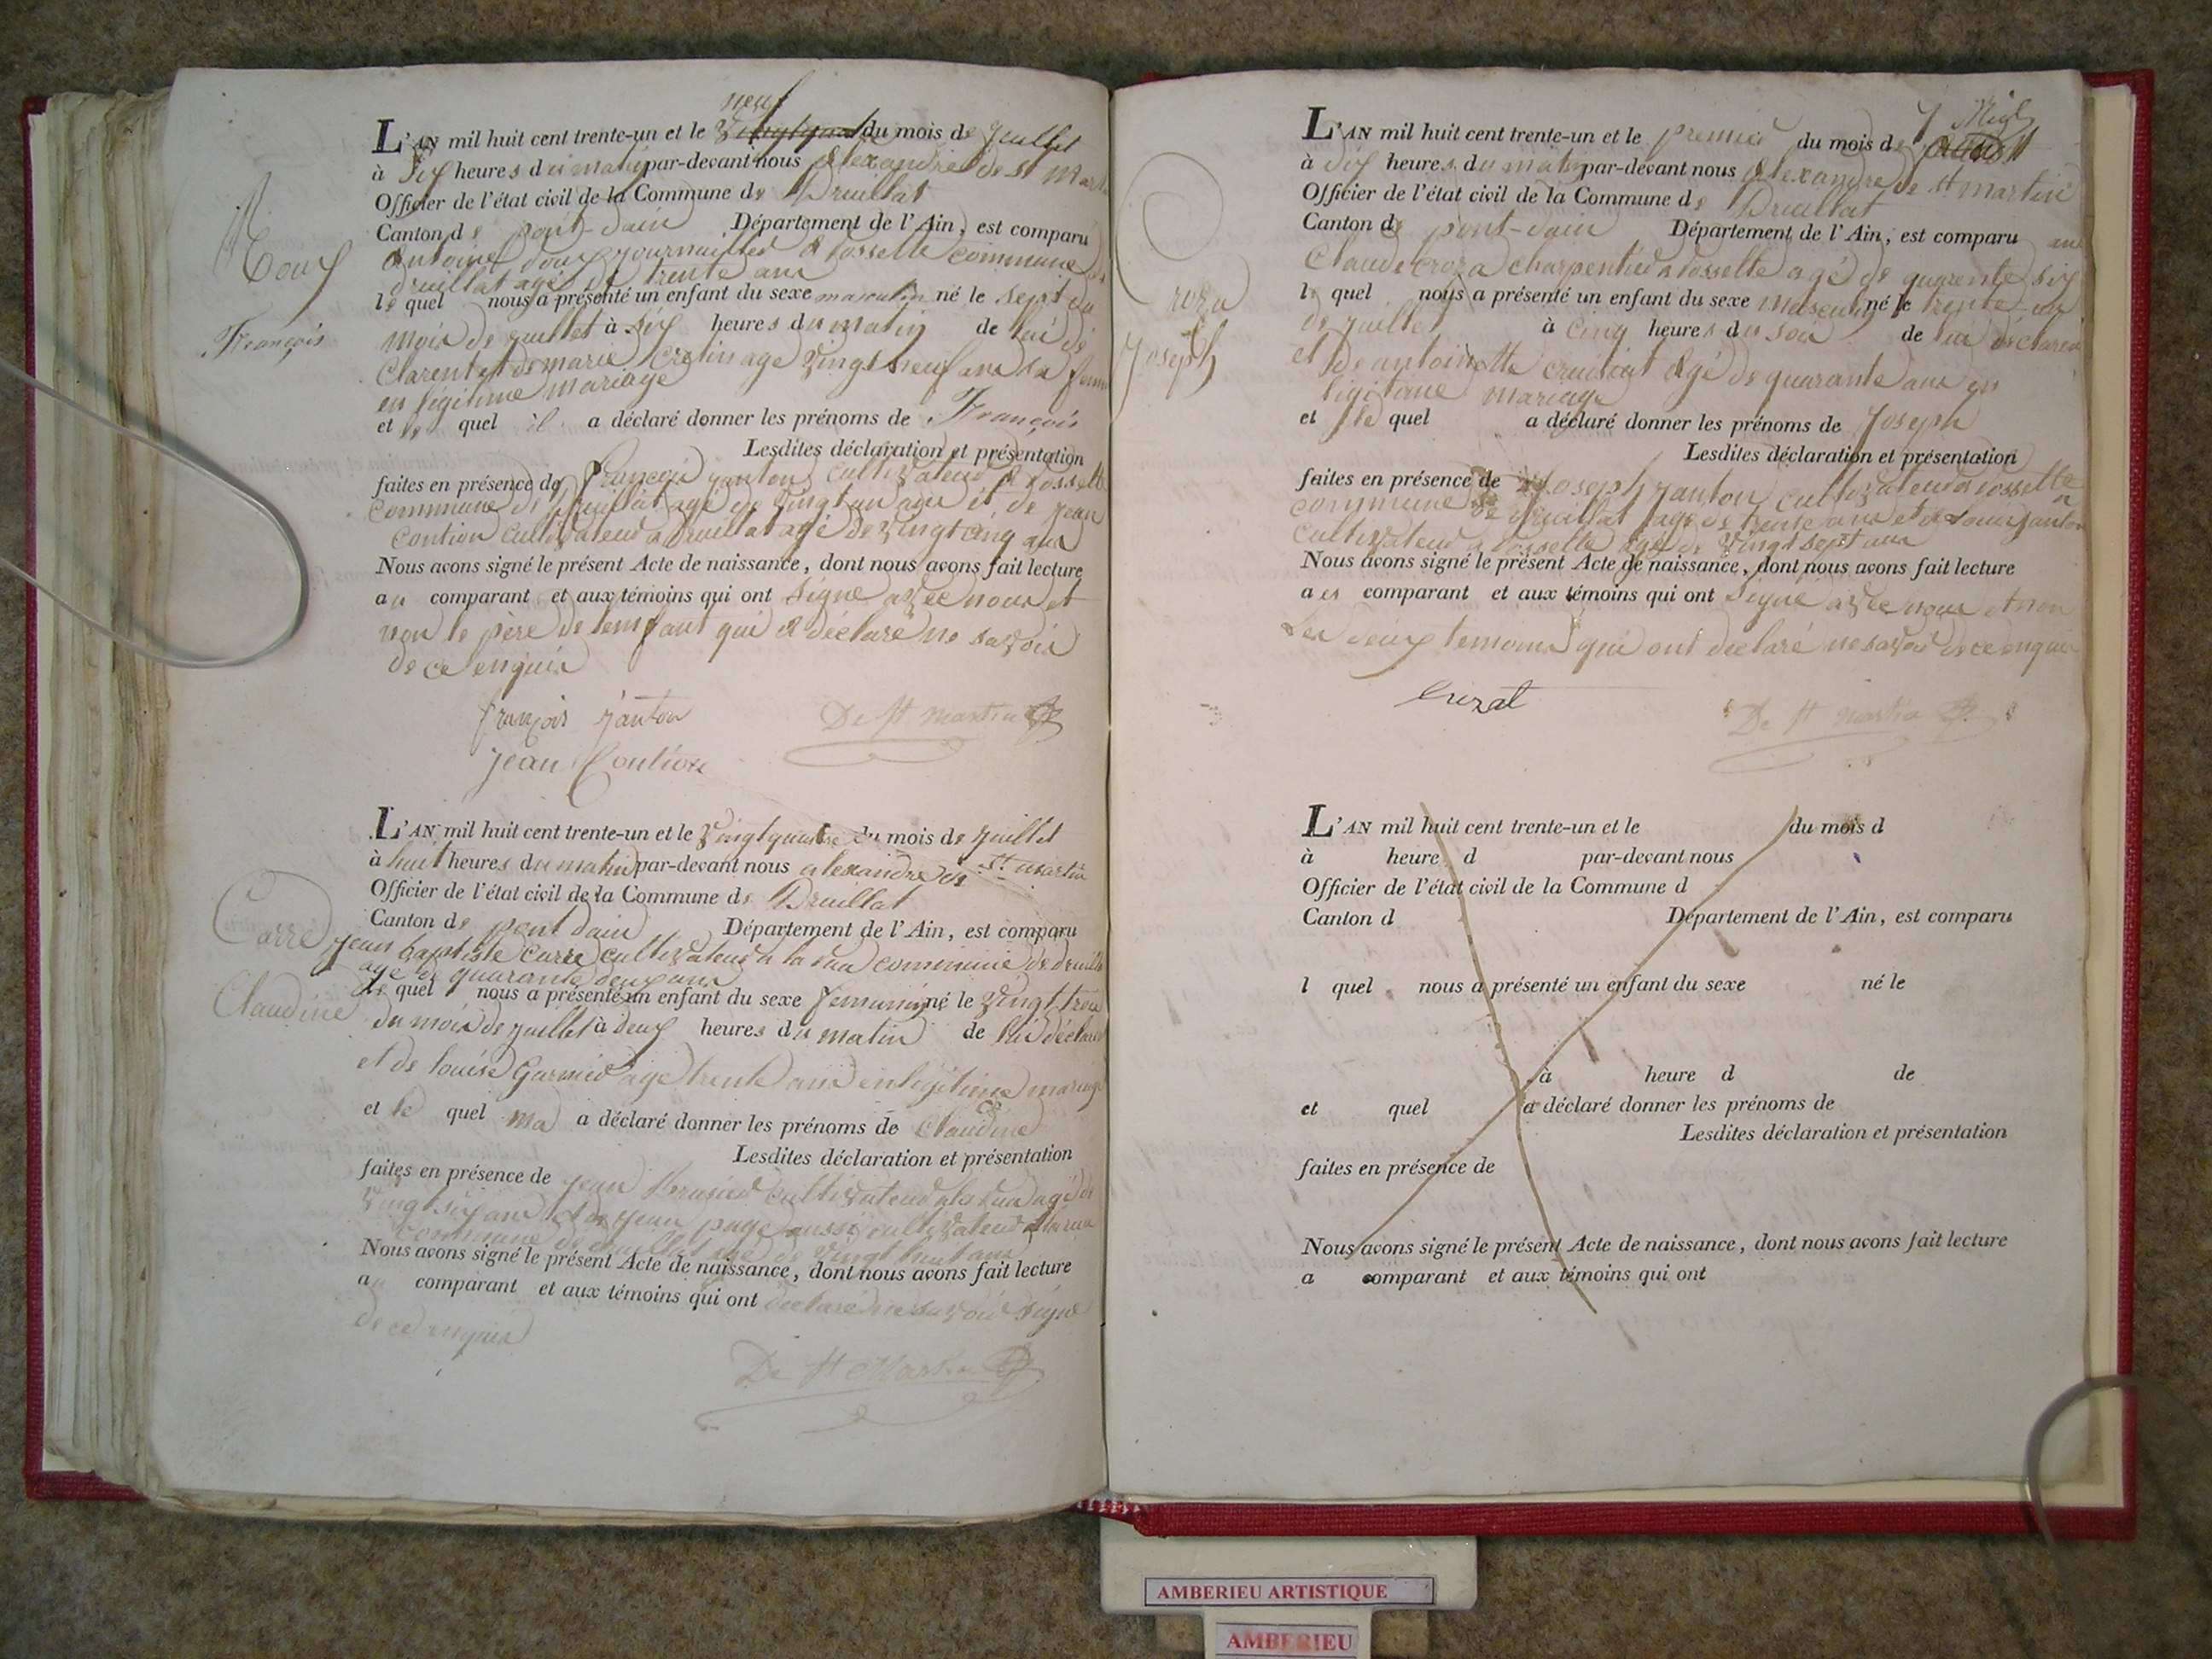 neuf
L'AN mil huit cent trente-un et le du mois de juillet
à six heures du matin par-devant nous alexandre de st Martin
Officier de l'état civil de la Commune de Druillat
Canton de pont-dain Département de l'Ain, est comparu
antoine journallier a rosselle commune de
druillat agé de trente ans
le quel nous a présenté un enfant du sexe masculin né le sept du
mois de juillet à six heures du matin de lui dé
clarent et de marie agé vingt neuf ans sa femme
en légitime mariage
et le quel il a déclaré donner les prénoms de François
Lesdites déclaration et présentation
faites en présence de françois janton cultivateur a rosselle
commune de druillat agé de vingt un ans et de jean
contion cultivateur a druillat agé de vingt cinq ans
Nous avons signé le présent Acte de naissance, dont nous avons fait lecture
au comparant et aux témoins qui ont signé avec nous et
non le père de lenfant qui a déclaré ne savoir
de ce enquis
françois janton De st martin
jean Contion
François
L'AN mil huit cent trente-un et le vingt quatre du mois de juillet
à huit heures du matin par-devant nous alexandre de St martin
Officier de l'état civil de la Commune de Druillat
Canton de pont dain Département de l'Ain, est comparu
jean baptiste carré cultivateur a la rua commune de druillat
age de quarante deux ans
le quel nous a présenté un enfant du sexe feminin né le vingt trois
du mois de juillet à deux heures du matin de lui déclarent
et de louise Garnier agé trente ans en légitime mariage
et le quel ma a déclaré donner les prénoms de Claudine
Lesdites déclaration et présentation
faites en présence de jean cultivateur a la rua agé de
vingt six ans et de jean page aussi cultivateur a la rua
commune de druillat agé de vingt huit ans
Nous avons signé le présent Acte de naissance, dont nous avons fait lecture
au comparant et aux témoins qui ont declaré ne savoir signé
de ce enquis
De st Martin
Carré
Claudine
L'AN mil huit cent trente-un et le premier du mois d
à dix heures du matin par-devant nous alexandre de st martin
Officier de l'état civil de la Commune de Druillat
Canton de pont-dain Département de l'Ain, est comparu
Claude croza charpentier a rosselle agé de quarente six ans
le quel nous a présenté un enfant du sexe masculin né le trente un
de juillet à cinq heures du soir de lui déclarent
et de antoinette agé de quarante ans en
légitime mariage
et le quel a déclaré donner les prénoms de joseph
Lesdites déclaration et présentation
faites en présence de joseph janton cultivateur a rosselle
commune de druillat agé de trente ans et de louis janton
cultivateur a rosselle agé de vingt sept ans
Nous avons signé le présent Acte de naissance, dont nous avons fait lecture
a es comparant et aux témoins qui ont signé avec nous et non
les deux temoins qui ont declaré ne savoir de ce enquis
De st martin
roza
joseph
L'AN mil huit cent trente-un et le du mois d
à heure d par-devant nous
Officier de l'état civil de la Commune d
Canton d Département de l'Ain, est comparu
l quel nous a présenté un enfant du sexe né le
à heure d de
et quel a déclaré donner les prénoms de
Lesdites déclaration et présentation
faites en présence de
Nous avons signé le présent Acte de naissance, dont nous avons fait lecture
a comparant et aux témoins qui ont
AMBERIEU ARTISTIQUE
AMBERIEU